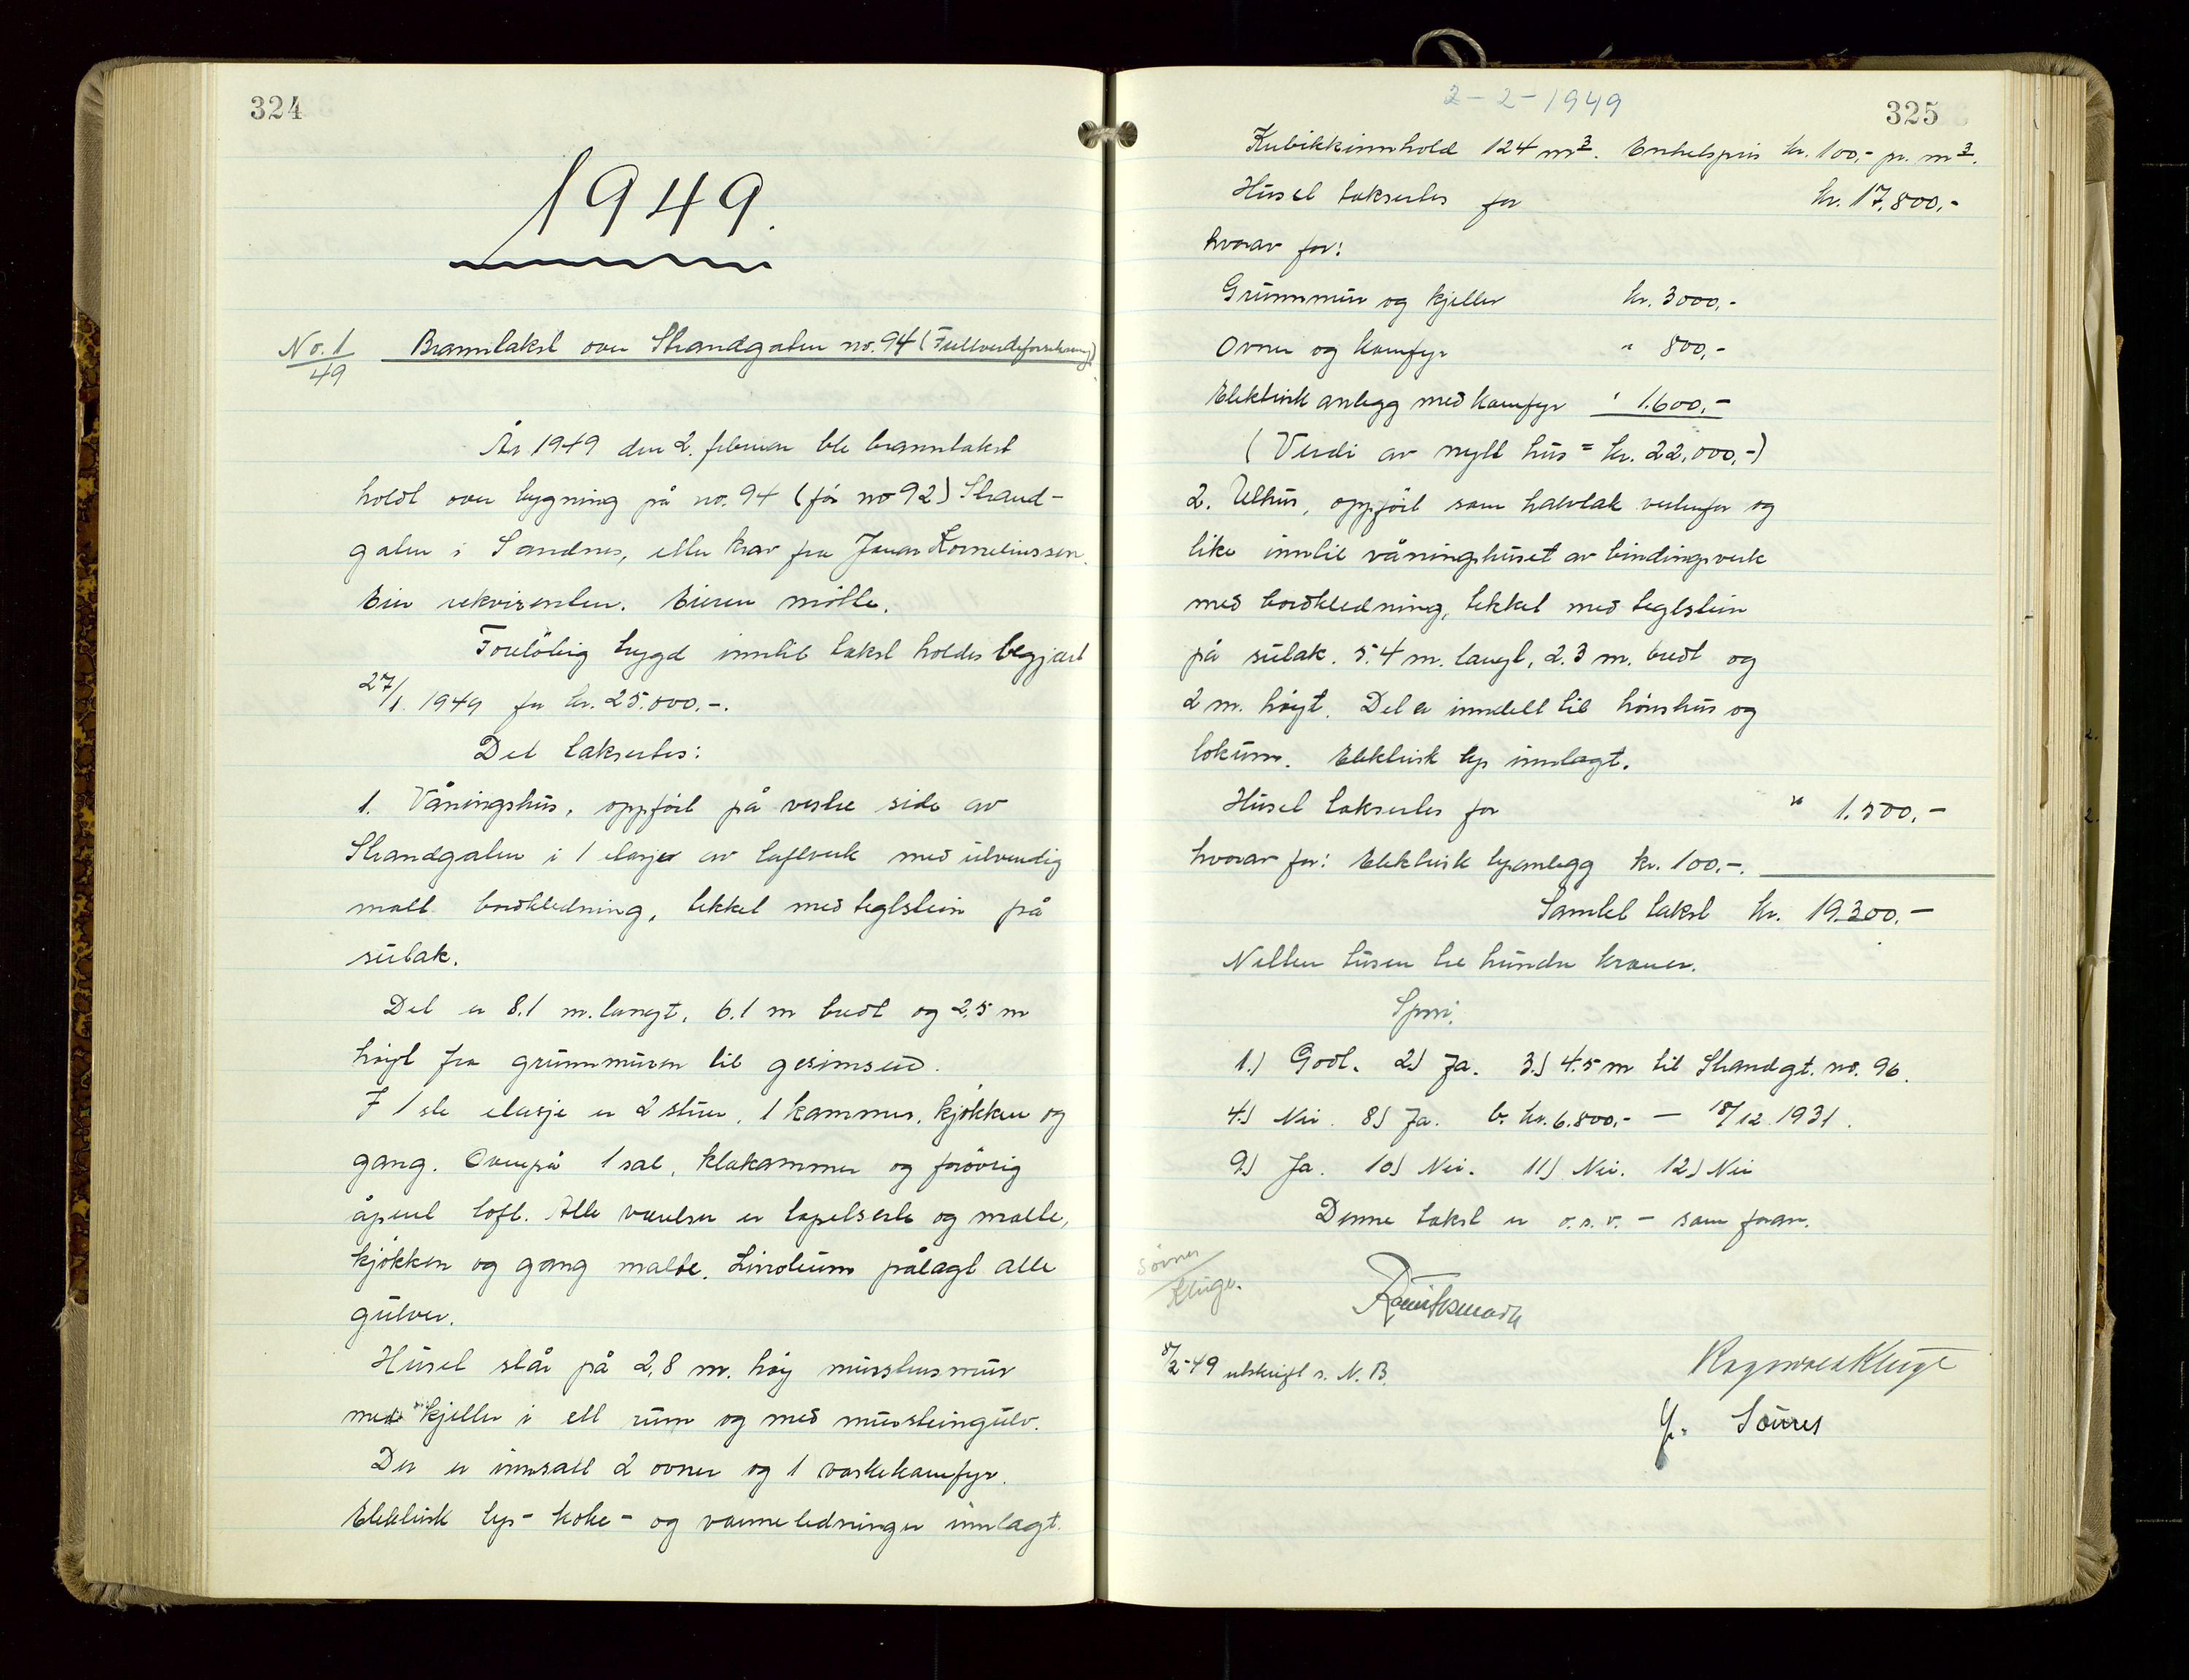 324
1949.
No. 1
49
Branntakst over Strandgaten no. 94 (Fullverdiforsikring)
År 1949 den 2. februar ble branntakst
holdt over bygning på no. 94 (før no 92) Strand-
gaten i Sandnes, etter krav fra Jonas Korneliussen.
Eier rekvirenten. Eieren møtte.
Foreløbig trygd inntil takst holdes begjært
27/1 1949 for kr. 25.000.-.
Det takseres:
1. Våningshus, oppført på vestre side av
Strandgaten i 1 etasje av taftverk med utvendig
malt bordkledning, tekket med teglstein på
sutak.
Det er 8.1 m. langt, 6.1 m bredt og 2,5 m
høyt fra grunnmuren til gesimsen.
I 1ste etasje er 2 stuer, 1 kammer, kjøkken og
gang. Ovenpå 1 sal, klekammer og forøvrig
åpent loft. Alle værelser er tapetserte og malte,
kjøkken og gang malte. Linoleum pålagt alle
gulver.
Huset står på 2,8 m. høy murstensmur
med kjeller i ett rum og med mursteingulv.
Der er innsatt 2 ovner og 1 vaskekomfyr.
Elektrisk lys- koke- og varmeledninger innlagt.
2-2-1949
325
Kubikkinnhold 124 m3. Enhetspris kr. 100,- pr. m3.
Huset takseres for kr. 17,800,-
hvorav for:
Grunnmur og kjeller kr. 3000,-
Ovner og komfyr " 800,-
Elektrisk anlegg med komfyr " 1.600,-
(Verdi av nytt hus = kr. 22,000,-)
2. Uthus, oppført som halvtak vestenfor og
like inntil våninghuset av bindingsverk
med bordkledning, tekket med teglstein
på sutak. 5.4 m. langt, 2.3 m. bredt og
2 m. høyt. Det er inndelt til hønshus og
lokum. Elektrisk lys innlagt.
Huset takseres for " 1.500,-
hvorav for: Elektrisk lysanlegg kr. 100,-.
Samlet takst kr. 19.300,-
Nitten tusen tre hundre kroner.
Spm.
1.) Godt. 2.) Ja. 3.) 4.5 m til Strandgt. no. 96.
4.) Nei. 8.) Ja. b. kr. 6.800,- - 18/12 1931.
9.) Ja. 10) Nei. 11) Nei. 12) Nei
Denne takst er o.s.v. - som foran.
Sørnes
Kluge.
8/2-49 utskrift s. N. B.
Ragnvald Kluge
Sørnes